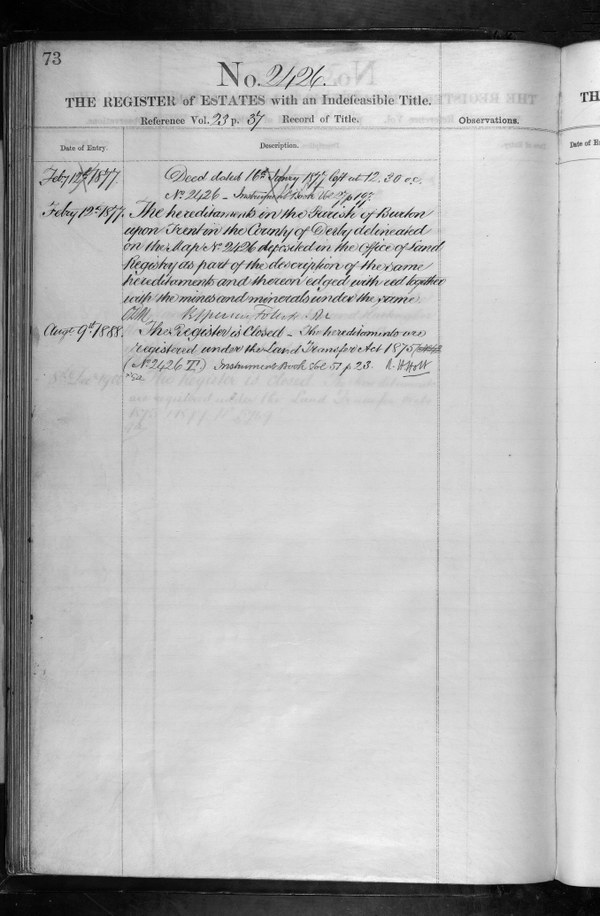 73
No. 2426.
THE REGISTER of ESTATES with an Indefeasible Title.
Reference Vol. 23 p. 37 Record of Title.
Observations.
Date of Entry.
Description.
Feby 12th 1877.
Deed dated 16th Janry 1877 left at 12.30 o.c.
No 2426 - Instrument Book Vol 27 p 197.
Febry 12th 1877.
The hereditaments in the Parish of Burton
upon Trent in the County of Derby delineated
on the Map No 2426 deposited in the Office of Land
Registry as part of the description of the same
hereditaments and thereon edged with red together
with the mines and minerals under the same
Augt 9th 1888.
The Register is Closed - The hereditaments are
registered under the Land Transfer Act 1875
(No 2426 T.) Instrument Book Vol 51 p 23. R. H. Holt
THE
Date of E